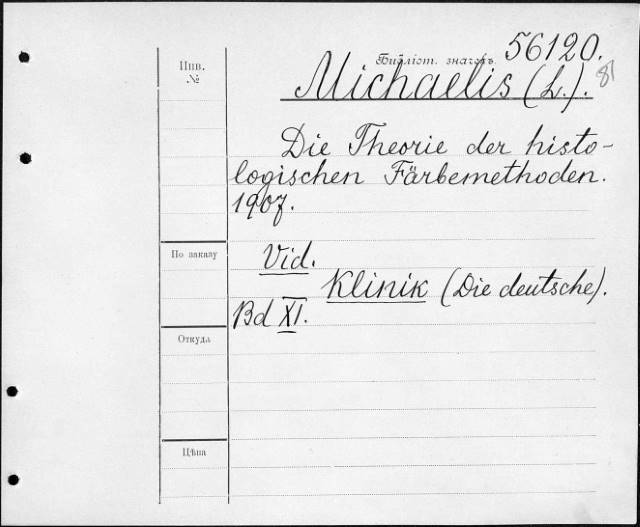 Библіот. значекъ 56120.
Инв.
№
Michaelis (L.). 81
Die Theorie der histo-
logischen Färbemethoden.
1907.
По заказу
Vid.
Klinik (Die deutsche).
Bd XI.
Откуда
Цѣна